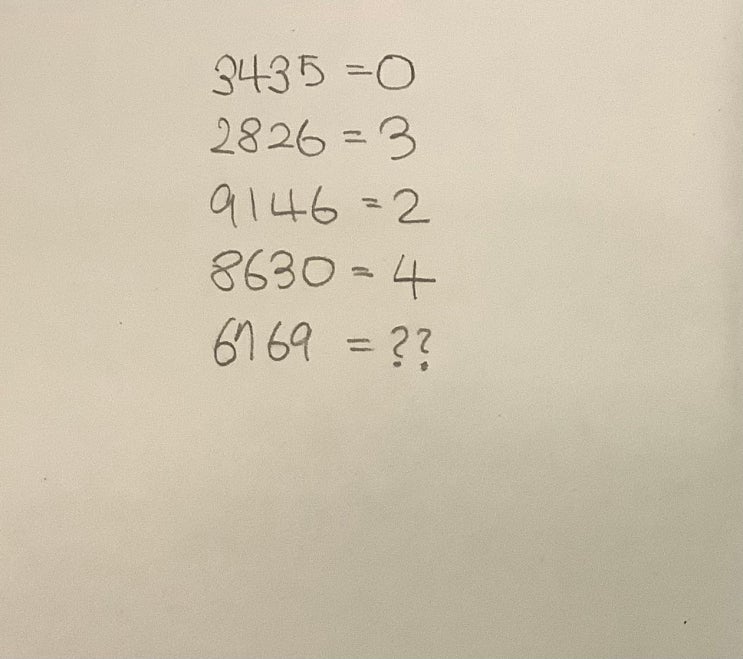 3435 = 0
2826 = 3
9146 = 2
8630 = 4
6769 = ??